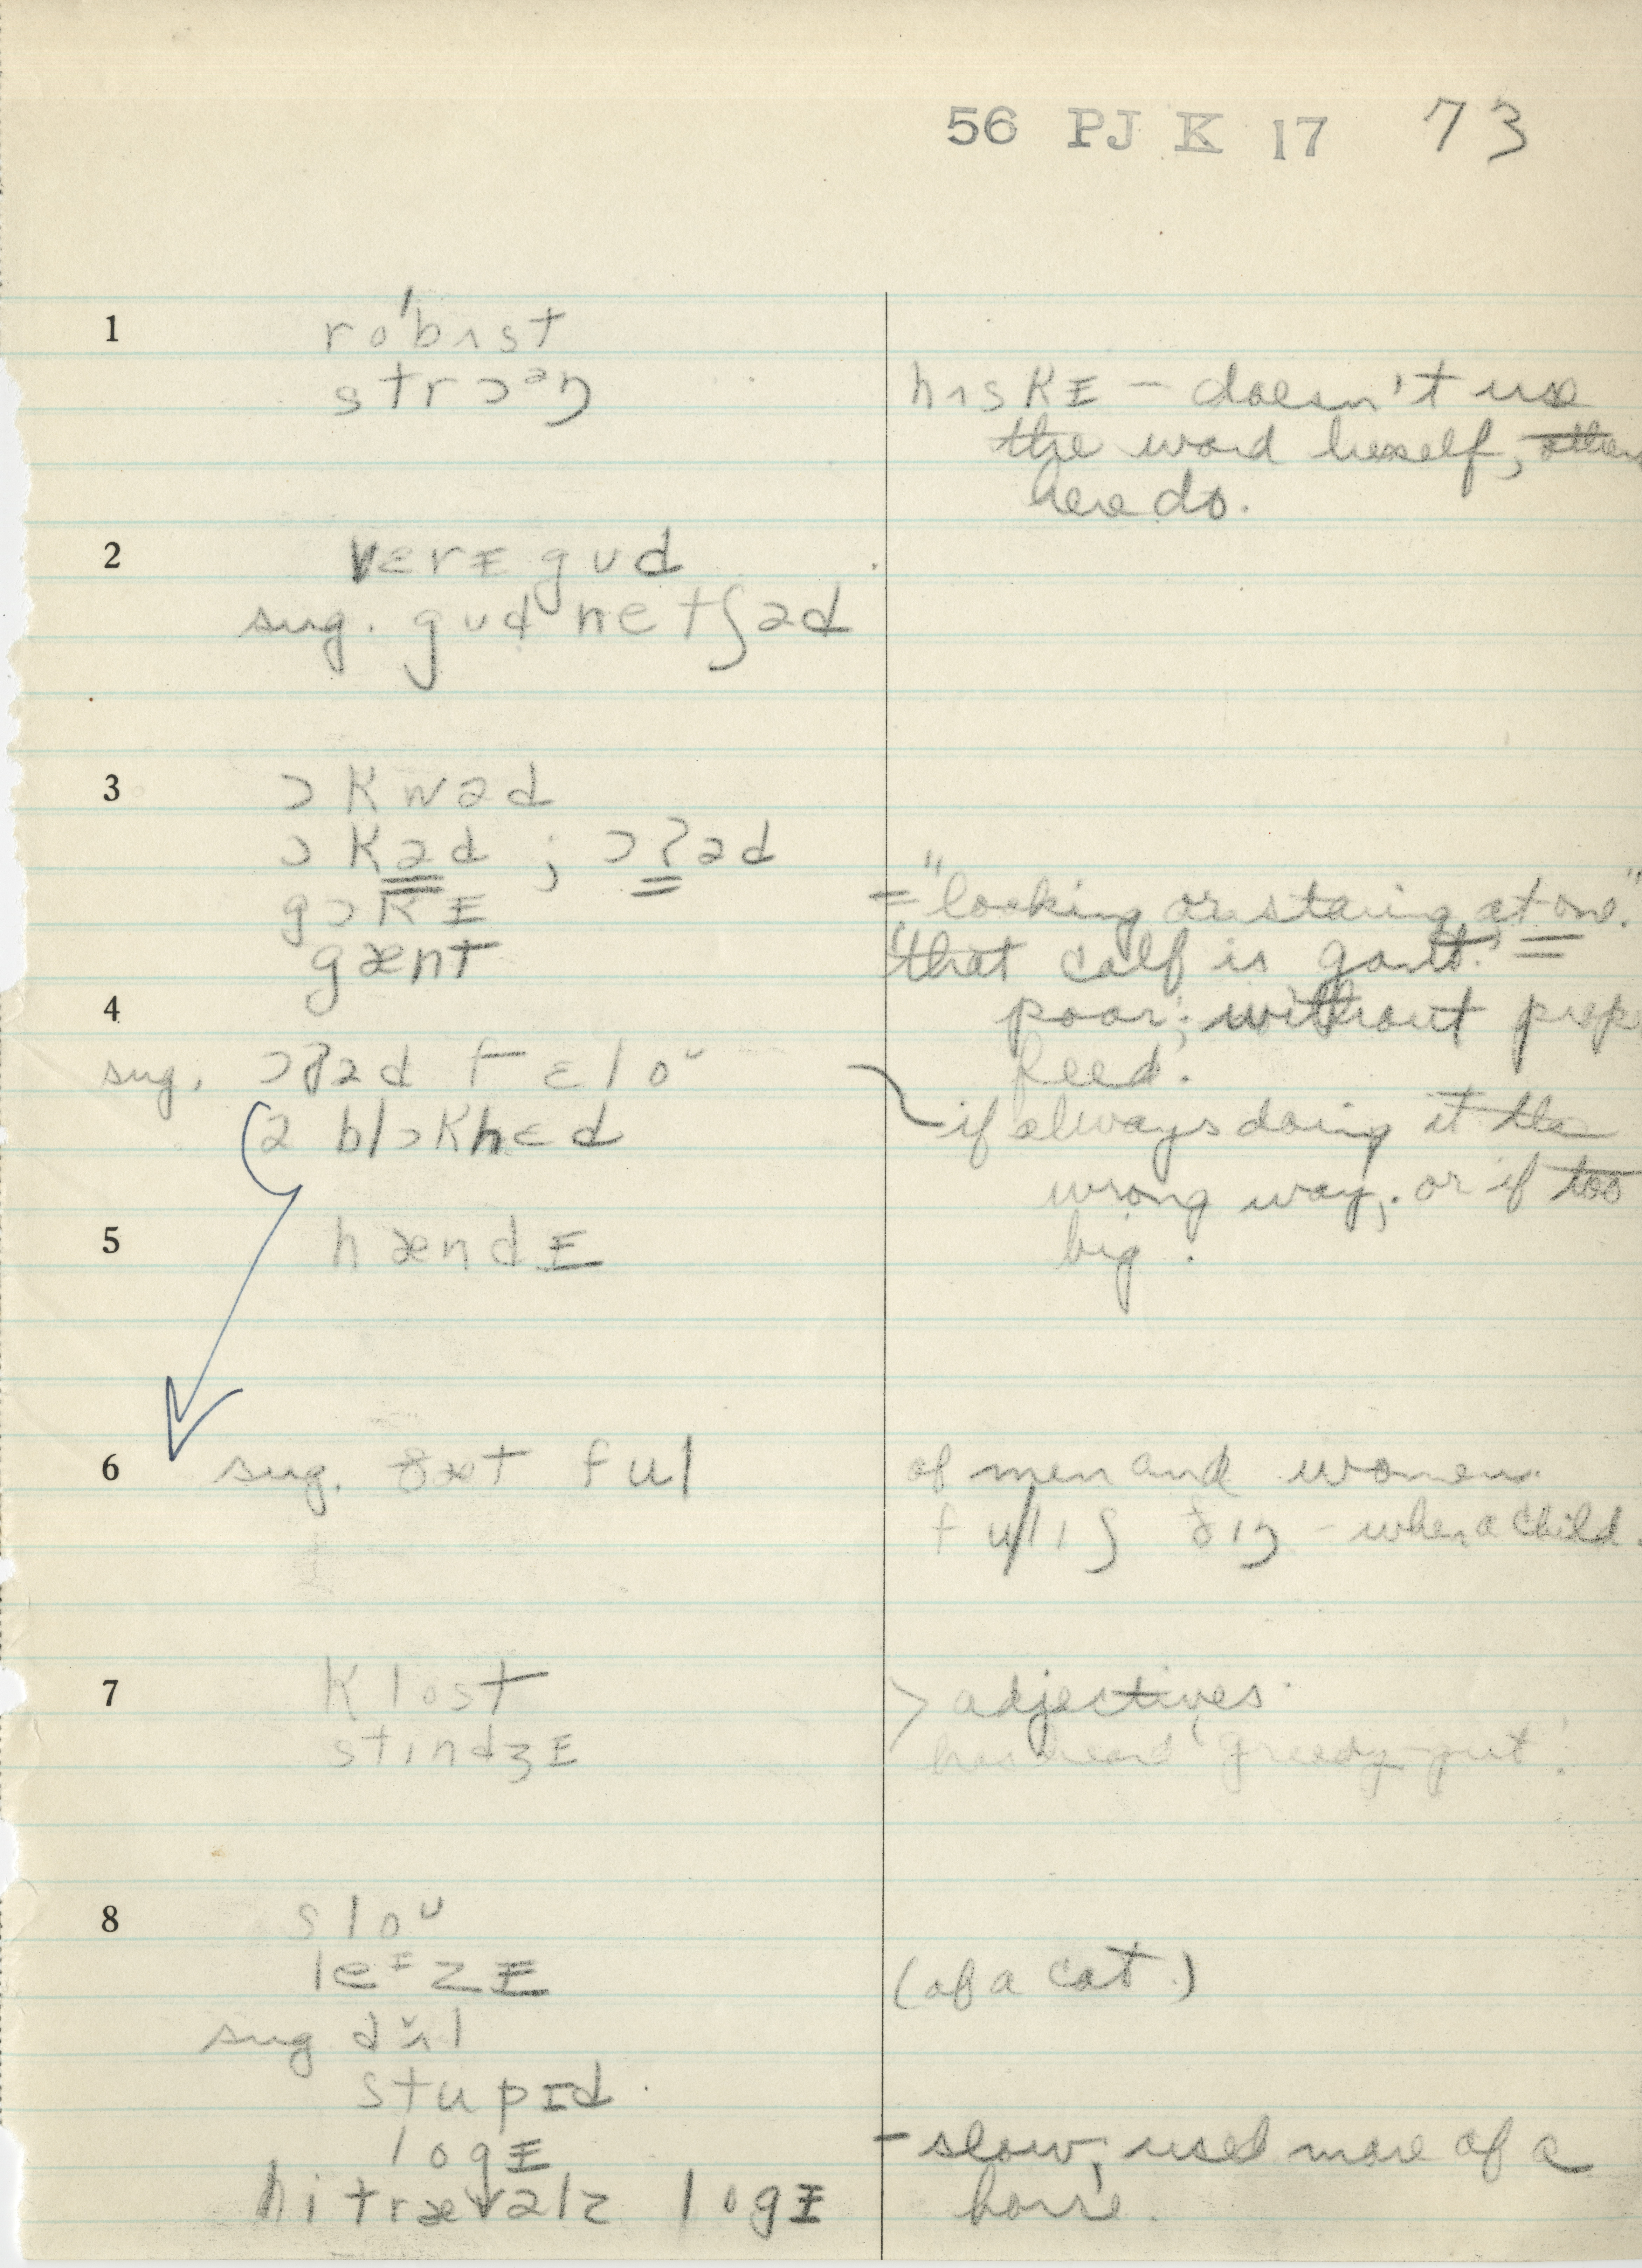 56 PJ K 17 73
1 ro'bʌst
strɔᵊŋ
hʌskɪ – doesn't use
the word herself, others
here do.
2 vɛrɪ gud
sug. gud netʃəd
3 ɔkwəd
ɔkəd ; ɔʔəd
gɔkɪ = "looking or staring at one."
gænt "that calf is gant."
4 poor; without prop
feed.
sug. ɔʔəd fɛloᵘ
ə blɔkhɛd
if always doing it the
wrong way, or if too
big.
5 hændɪ
6 sug. ðæt ful of men and women.
fulɪʃ ðɪŋ – when a child.
7 klost > adjectives.
stɪndʒɪ has heard 'greedy-gut'.
8 sloᵘ
leᶦzɪ (of a cat.)
sug dʌl
stupɪd.
logɪ – slow, used more of a
hi trævəlz logɪ horse.